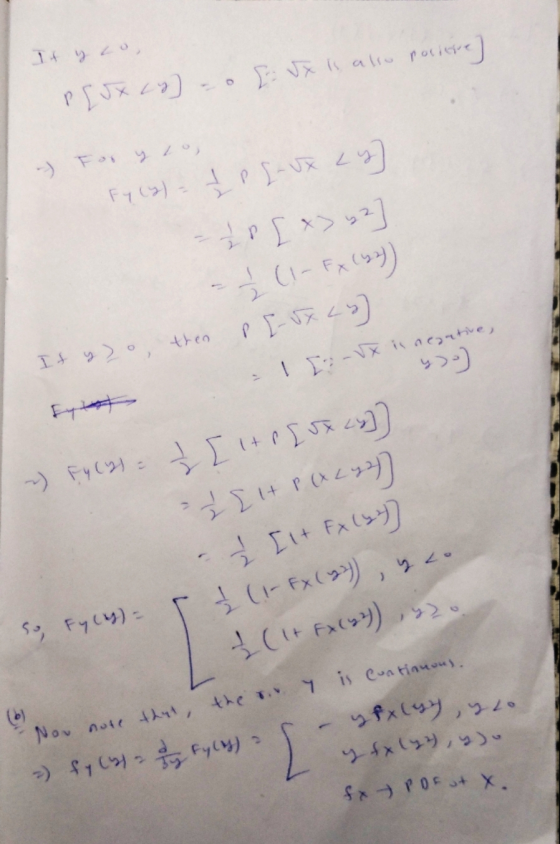 If y < 0,
P[√x < y] = 0 [∵ √x is also positive]
⇒ For y < 0,
Fy(y) = 1/2 P[-√x < y]
= 1/2 P[x > y²]
= 1/2 (1 - Fx(y²))
If y ≥ 0, then P[-√x < y]
= 1 [∵ -√x is negative, y>0]
⇒ Fy(y) = 1/2 [1 + P[√x < y]]
= 1/2 [1 + P(x < y²)]
= 1/2 [1 + Fx(y²)]
So, Fy(y) = [ 1/2 (1 - Fx(y²)), y < 0
1/2 (1 + Fx(y²)), y ≥ 0.
(b) Now note that, the r.v y is continuous.
⇒ fy(y) = d/dy Fy(y) = [ - y fx(y²), y < 0
y fx(y²), y > 0
fx → PDF of X.